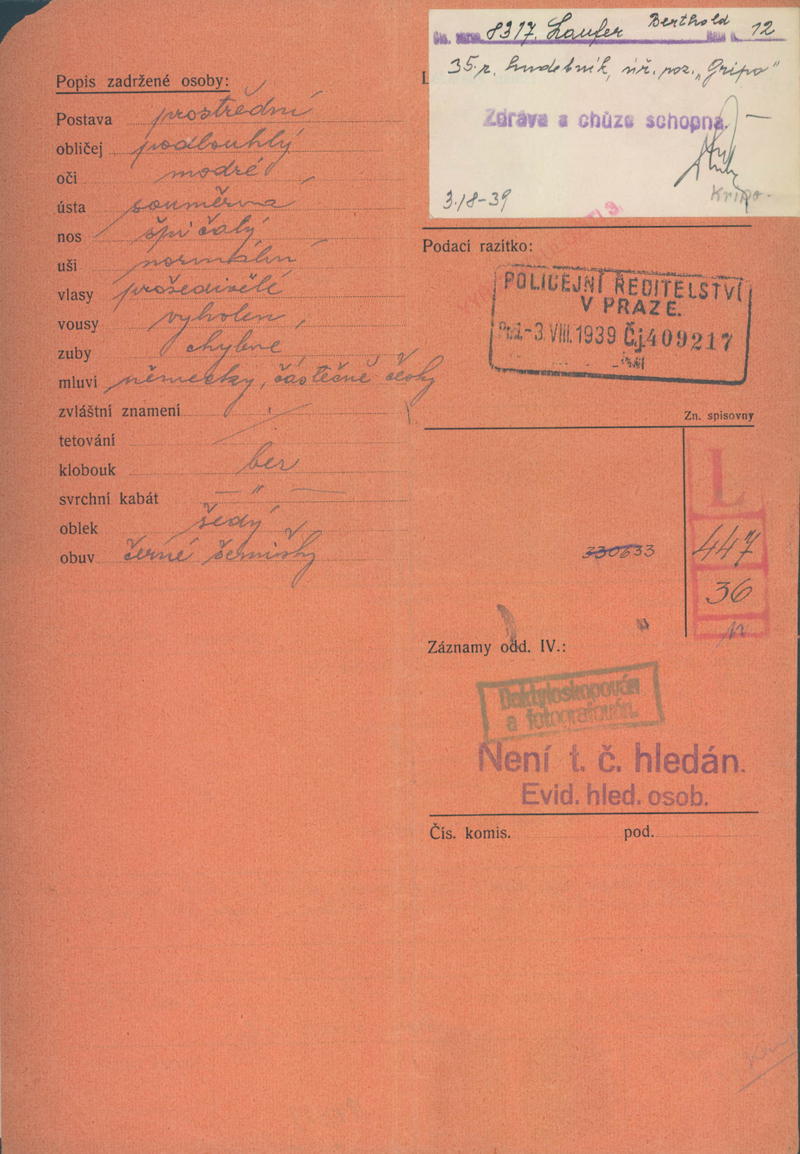 Popis zadržené osoby:
Postava prostřední
obličej podlouhlý
oči modré
ústa souměrná
nos špičatý
uši normální
vlasy prošedivělé
vousy vyholen,
zuby chybné
mluví německy, částečně česky
zvláštní znamení
tetování
klobouk bez
svrchní kabát — " —
oblek šedý
obuv černé šemišky
8317. Laufer Berthold 12
35.r. hudebník, "Gripo"
Zdráva a chůze schopna.
3./8-39 Kripo.
Podací razítko:
POLICEJNÍ ŘEDITELSTVÍ
V PRAZE.
-3. VIII. 1939 Č.j. 409217
Zn. spisovny
L
330633
447
36
Záznamy odd. IV.:
Daktyloskopován
a fotografován.
Není t. č. hledán.
Evid. hled. osob.
Čís. komis. pod.